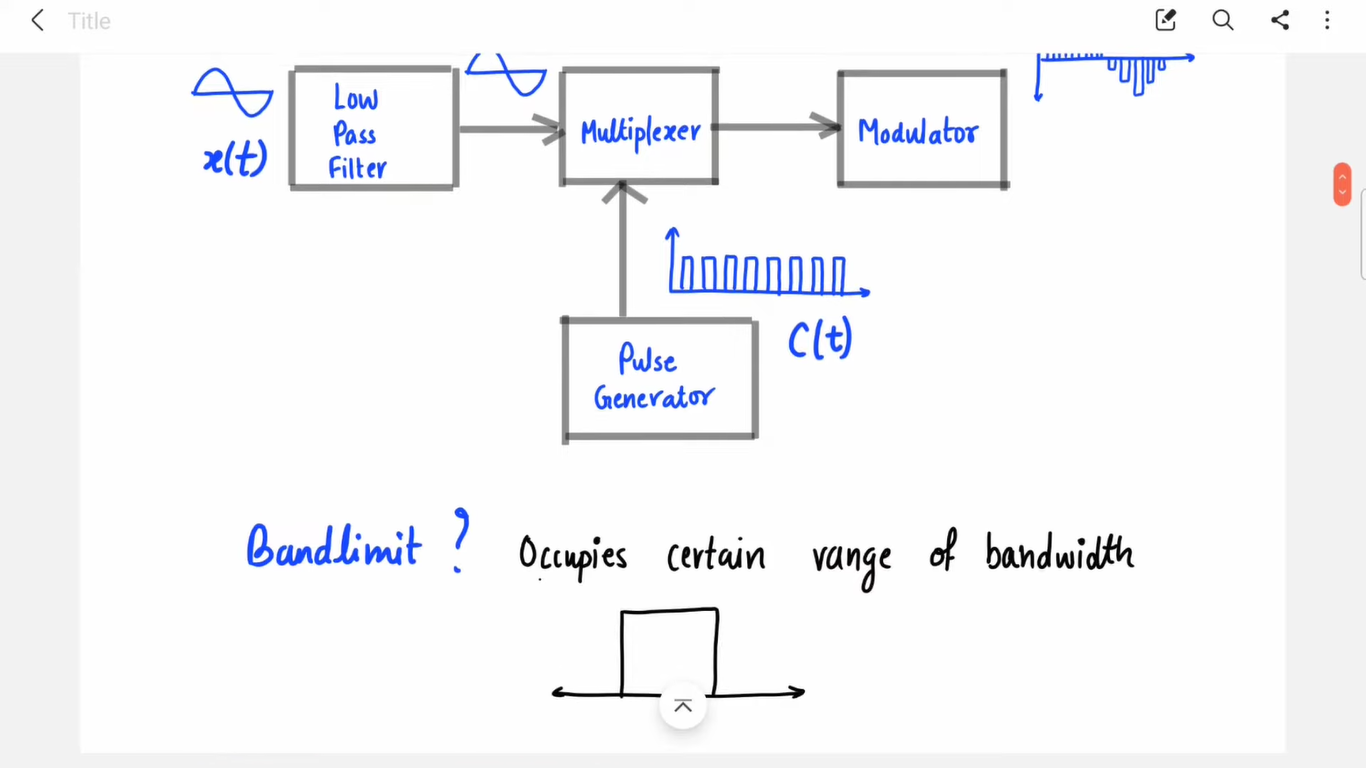 Title
Low
Pass
Filter
Multiplexer
Modulator
x(t)
C(t)
Pulse
Generator
Bandlimit ? Occupies certain range of bandwidth